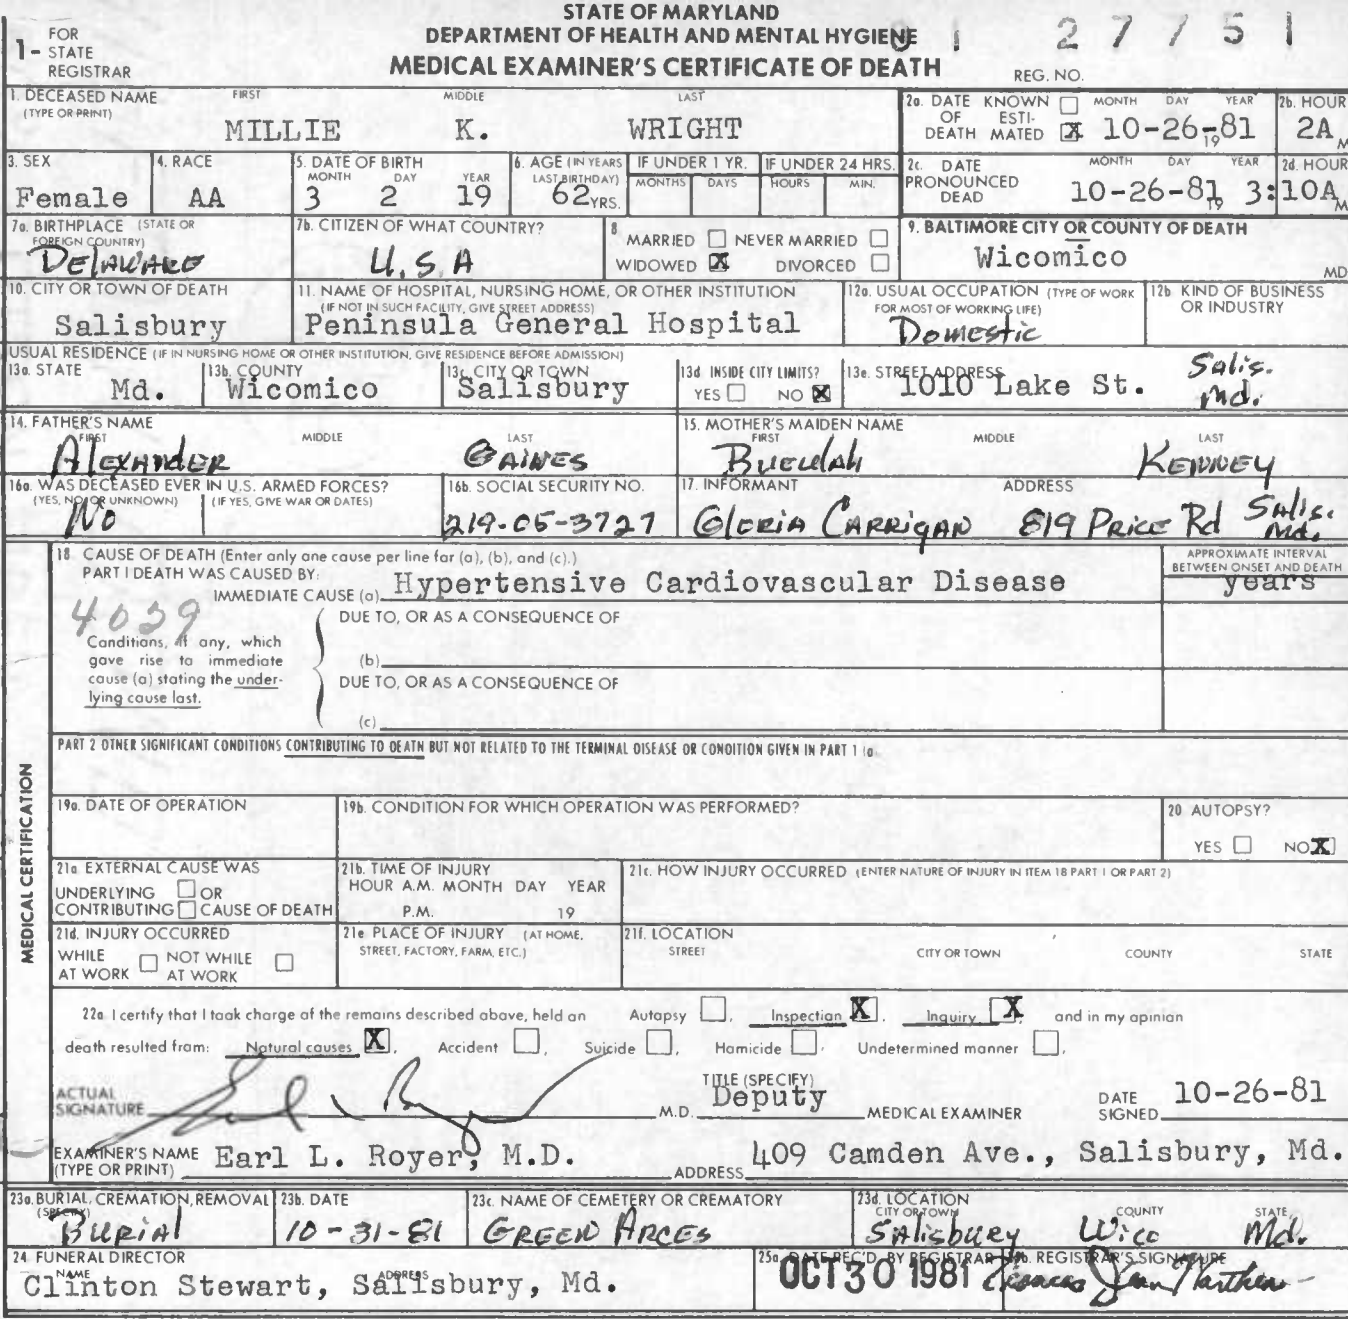 STATE OF MARYLAND
DEPARTMENT OF HEALTH AND MENTAL HYGIENE
MEDICAL EXAMINER'S CERTIFICATE OF DEATH
1- FOR STATE REGISTRAR
REG. NO. 81 27751
1. DECEASED NAME (TYPE OR PRINT) FIRST MIDDLE LAST
MILLIE K. WRIGHT
2a. DATE OF DEATH KNOWN ESTIMATED X MONTH DAY YEAR 10-26-81 19
2b. HOUR 2A M
3. SEX Female
4. RACE AA
5. DATE OF BIRTH MONTH DAY YEAR 3 2 19
6. AGE (IN YEARS LAST BIRTHDAY) 62 YRS.
IF UNDER 1 YR. MONTHS DAYS
IF UNDER 24 HRS. HOURS MIN.
2c. DATE PRONOUNCED DEAD MONTH DAY YEAR 10-26-81, 19
2d. HOUR 3:10A M
7a. BIRTHPLACE (STATE OR FOREIGN COUNTRY) DElAWARE
7b. CITIZEN OF WHAT COUNTRY? U.S.A
8 MARRIED NEVER MARRIED
WIDOWED X DIVORCED
9. BALTIMORE CITY OR COUNTY OF DEATH Wicomico MD
10. CITY OR TOWN OF DEATH Salisbury
11. NAME OF HOSPITAL, NURSING HOME, OR OTHER INSTITUTION (IF NOT IN SUCH FACILITY, GIVE STREET ADDRESS) Peninsula General Hospital
12a. USUAL OCCUPATION (TYPE OF WORK FOR MOST OF WORKING LIFE) Domestic
12b. KIND OF BUSINESS OR INDUSTRY
USUAL RESIDENCE (IF IN NURSING HOME OR OTHER INSTITUTION, GIVE RESIDENCE BEFORE ADMISSION)
13a. STATE Md.
13b. COUNTY Wicomico
13c. CITY OR TOWN Salisbury
13d INSIDE CITY LIMITS? YES NO X
13e. STREET ADDRESS 1010 Lake St. Salis. Md.
14. FATHER'S NAME FIRST MIDDLE LAST
Alexander GAINES
15. MOTHER'S MAIDEN NAME FIRST MIDDLE LAST
BUEULAH KENNEY
16a. WAS DECEASED EVER IN U.S. ARMED FORCES? (YES, NO, OR UNKNOWN) (IF YES, GIVE WAR OR DATES) No
16b. SOCIAL SECURITY NO. 219-05-3727
17. INFORMANT ADDRESS
GLORIA CARRIGAN 819 PRICE Rd SAlis. Md.
MEDICAL CERTIFICATION
18 CAUSE OF DEATH (Enter only one cause per line for (a), (b), and (c).)
PART I DEATH WAS CAUSED BY:
IMMEDIATE CAUSE (a) Hypertensive Cardiovascular Disease
APPROXIMATE INTERVAL BETWEEN ONSET AND DEATH years
4029
Conditions, if any, which gave rise to immediate cause (a) stating the underlying cause last.
DUE TO, OR AS A CONSEQUENCE OF
(b)
DUE TO, OR AS A CONSEQUENCE OF
(c)
PART 2 OTHER SIGNIFICANT CONDITIONS CONTRIBUTING TO DEATH BUT NOT RELATED TO THE TERMINAL DISEASE OR CONDITION GIVEN IN PART 1 (a
19a. DATE OF OPERATION
19b. CONDITION FOR WHICH OPERATION WAS PERFORMED?
20 AUTOPSY?
YES NO X
21a EXTERNAL CAUSE WAS
UNDERLYING OR
CONTRIBUTING CAUSE OF DEATH
21b. TIME OF INJURY
HOUR A.M. MONTH DAY YEAR
P.M. 19
21c. HOW INJURY OCCURRED (ENTER NATURE OF INJURY IN ITEM 18 PART 1 OR PART 2)
21d. INJURY OCCURRED
WHILE AT WORK NOT WHILE AT WORK
21e PLACE OF INJURY (AT HOME, STREET, FACTORY, FARM, ETC.)
21f. LOCATION
STREET CITY OR TOWN COUNTY STATE
22a I certify that I took charge of the remains described above, held an Autopsy , Inspection X , Inquiry X , and in my opinion
death resulted from: Natural causes X , Accident , Suicide , Homicide , Undetermined manner ,
ACTUAL SIGNATURE M.D.
TITLE (SPECIFY) Deputy MEDICAL EXAMINER
DATE SIGNED 10-26-81
EXAMINER'S NAME (TYPE OR PRINT) Earl L. Royer, M.D.
ADDRESS 409 Camden Ave., Salisbury, Md.
23a. BURIAL, CREMATION, REMOVAL (SPECIFY) BURIAL
23b. DATE 10-31-81
23c. NAME OF CEMETERY OR CREMATORY GREEN ARCES
23d. LOCATION CITY OR TOWN COUNTY STATE
SAlisbury Wico Md.
24 FUNERAL DIRECTOR NAME ADDRESS
Clinton Stewart, Salisbury, Md.
25a DATE REC'D. BY REGISTRAR OCT 30 1981
25b. REGISTRAR'S SIGNATURE